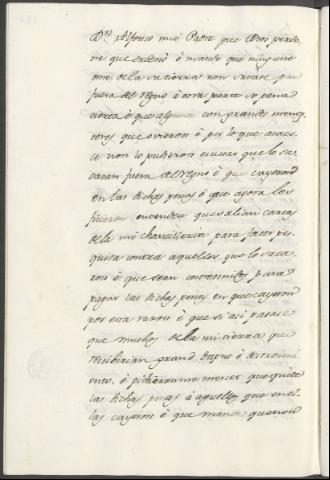 Dⁿ Alfonso mio Padre que Dios perdo-
ne que ordenò è mandó que ninguno
ome de la su tierra non sacase pan
fuera del regno è otra parte so pena
cierta è que algunos con grandes menes-
teres que ovieron è por lo que acaes-
ce non lo pudieron escusar que lo sa-
caran fuera del regno è que cayeron
en las dichas penas è que agora les
ficieron entender que salian cartas
de la mi chancilleria para facer pes-
quisa contra aquellos que lo saca-
ron è que sean costreñidos para
pagar las dichas penas en que cayeron
por esta razon è que si asi pasase
que muchos de la mi tierra que
rescibirian grand daño è
è pidieronme merced que quite
las dichas penas à aquellos que en el-
las cayeron è que mande que non